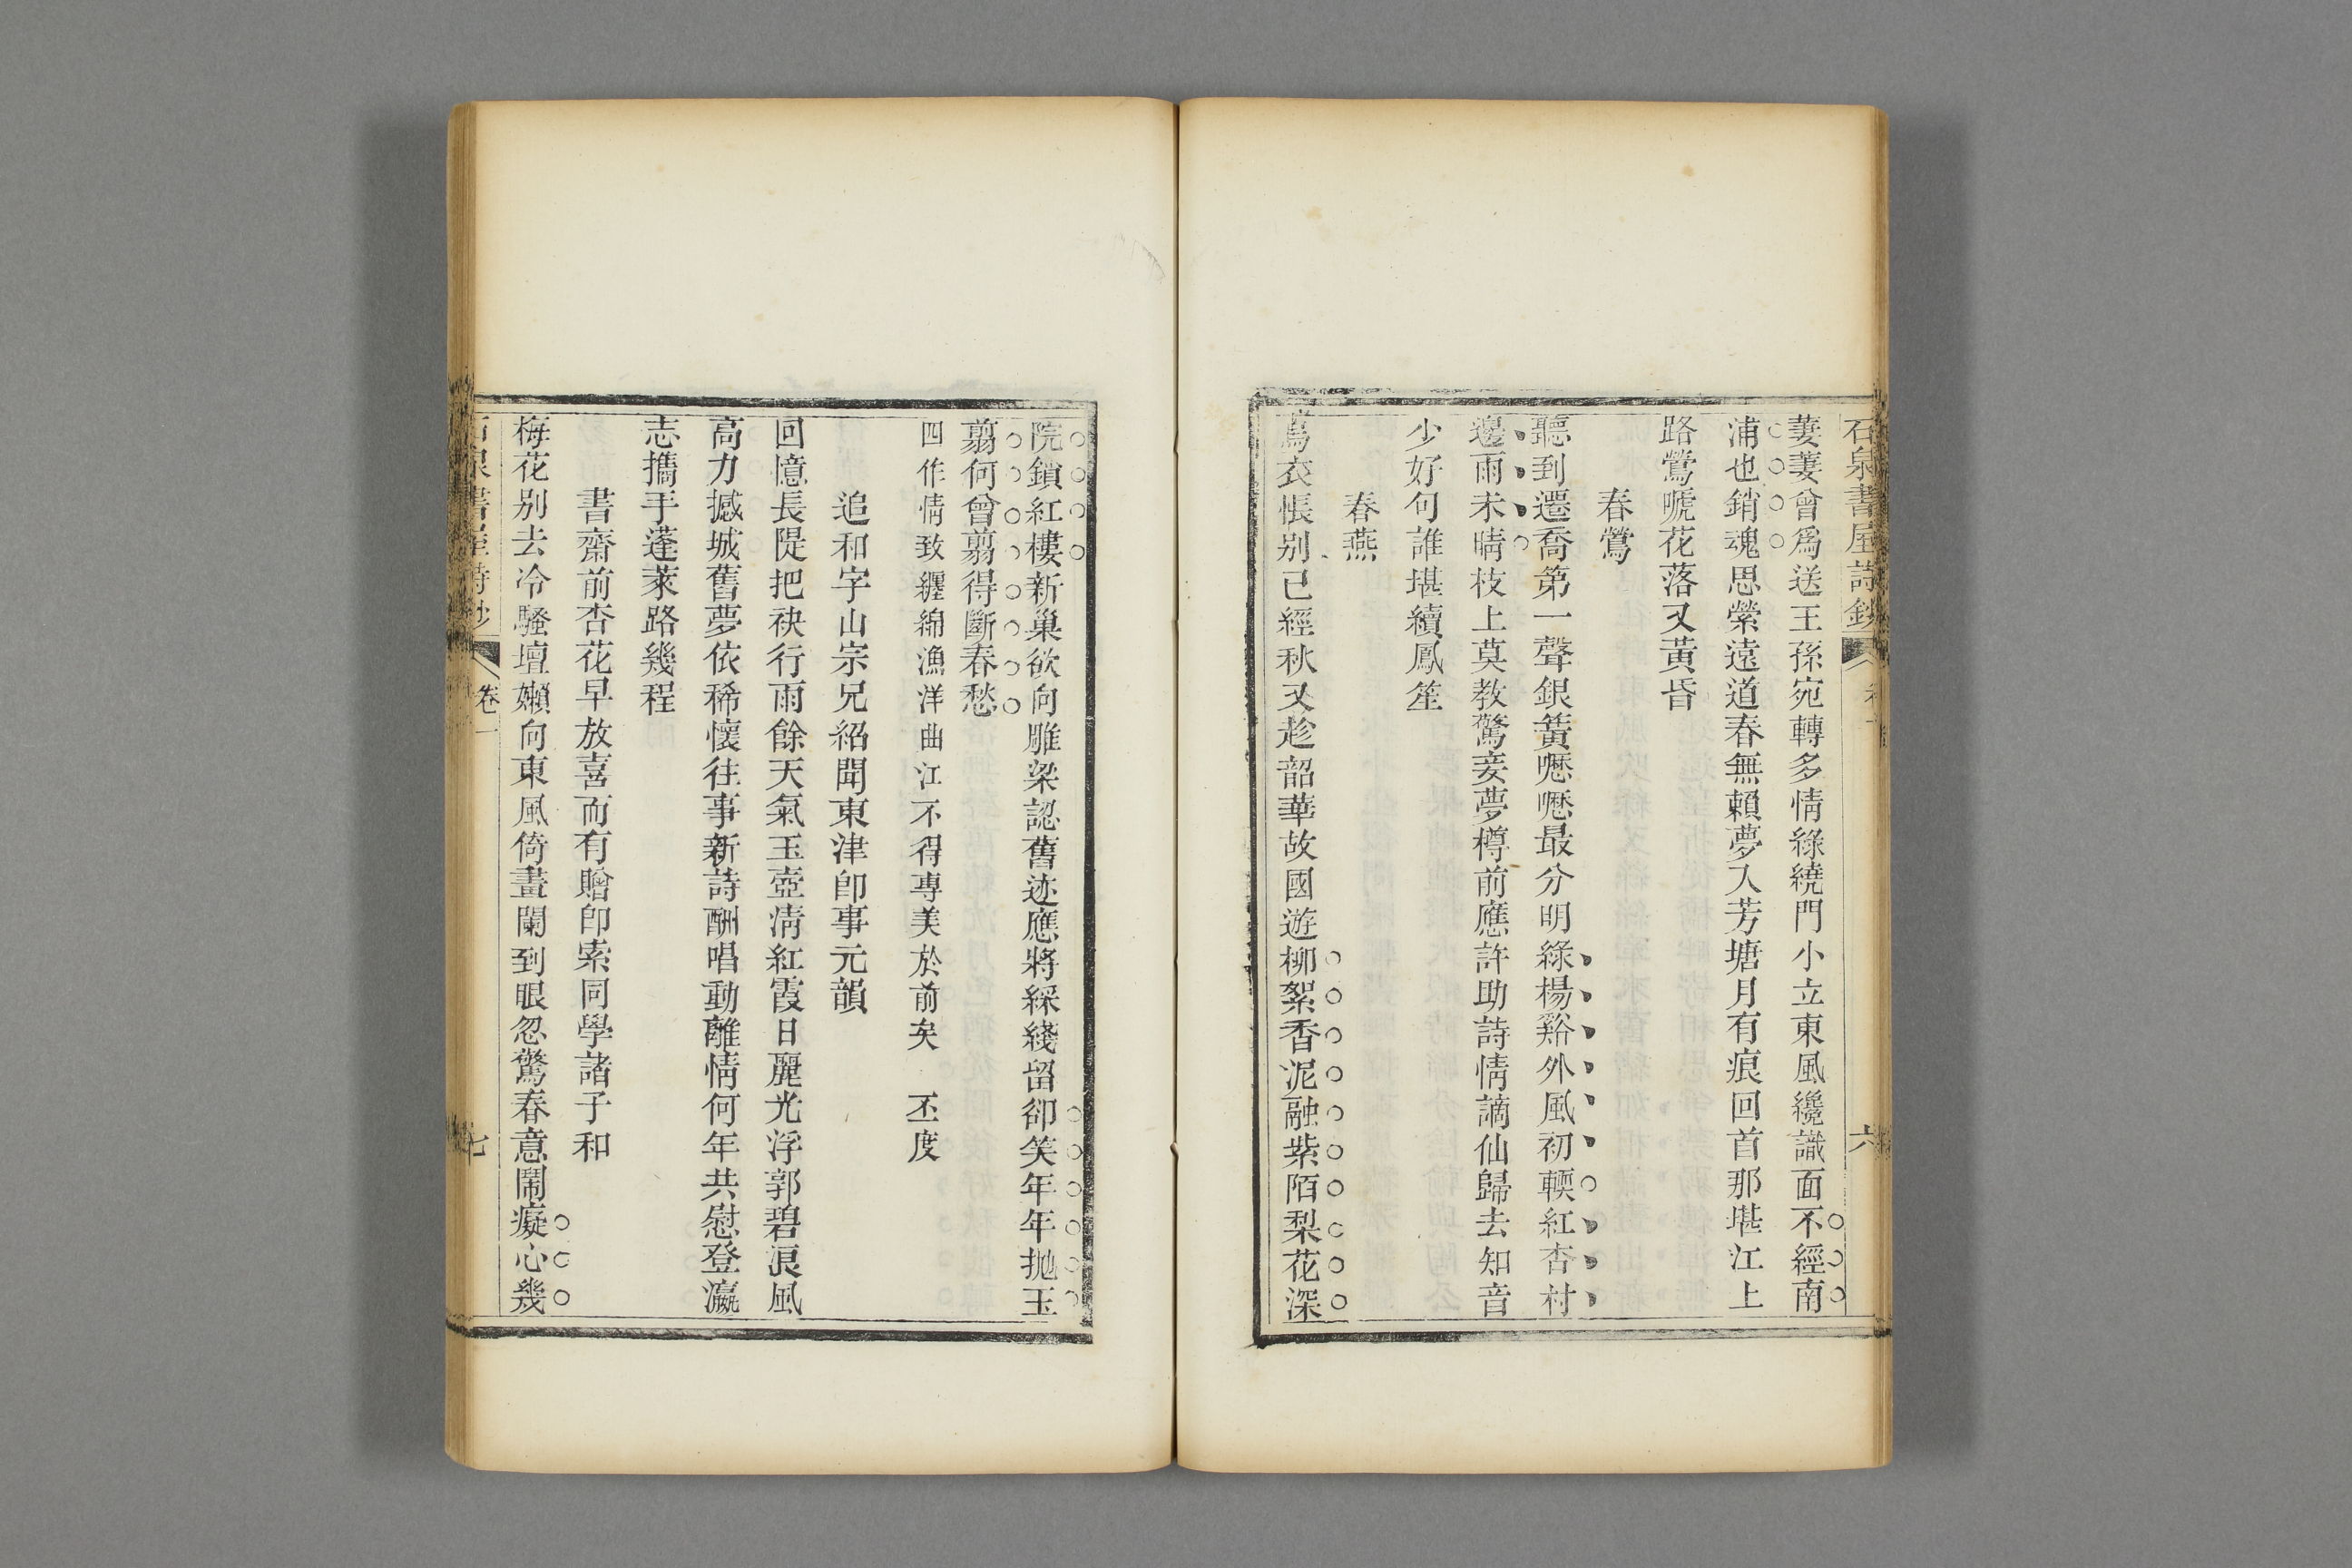 石泉書屋詩鈔
六
萋萋曾爲送王孫宛轉多情綠繞門小立東風纔識面不經南
浦也銷魂思縈遠道春無賴夢入芳塘月有痕回首那堪江上
路鶯嗁花落又黃昏
春鶯
聽到遷喬第一聲銀簧嚦嚦最分明綠楊谿外風初輭紅杏村
邊雨未晴枝上莫教驚妾夢樽前應許助詩情謫仙歸去知音
少好句誰堪續鳳笙
春燕
烏衣悵别已經秋又趁韶華故國遊柳絮香泥融紫陌梨花深
院鎖紅樓新巢欲向雕梁認舊迹應將綵綫留卻笑年年拋玉
翦何曾翦得斷春愁
四作情致纒綿漁洋曲江不得專美於前矣 丕度
追和字山宗兄紹聞東津卽事元韻
回憶長隄把袂行雨餘天氣玉壺清紅霞日麗光浮郭碧浪風
高力撼城舊夢依稀懷往事新詩酬唱動離情何年共慰登瀛
志攜手蓬萊路幾程
書齋前杏花早放喜而有贈卽索同學諸子和
梅花别去冷騷壇嬾向東風倚畫闌到眼忽驚春意鬧癡心幾
石泉書屋詩鈔
卷一
七